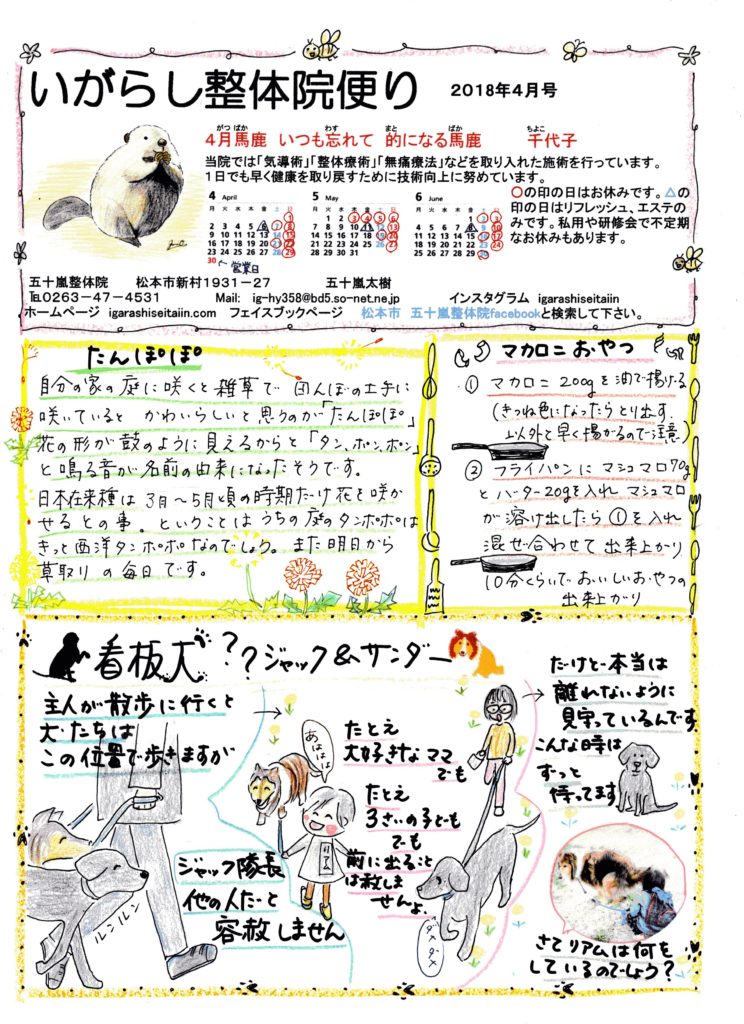 いがらし整体院便り 2018年4月号
4月馬鹿 いつも忘れて 的になる馬鹿 千代子
当院では「気導術」「整体療術」「無痛療法」などを取り入れた施術を行っています。
1日でも早く健康を取り戻すために技術向上に努めています。
4 April
月 火 水 木 金 土 日
1
2 3 4 5 6 7 8
9 10 11 12 13 14 15
16 17 18 19 20 21 22
23 24 25 26 27 28 29
30
営業日
5 May
月 火 水 木 金 土 日
1 2 3 4 5 6
7 8 9 10 11 12 13
14 15 16 17 18 19 20
21 22 23 24 25 26 27
28 29 30 31
6 June
月 火 水 木 金 土 日
1 2 3
4 5 6 7 8 9 10
11 12 13 14 15 16 17
18 19 20 21 22 23 24
25 26 27 28 29 30
○の印の日はお休みです。△の
印の日はリフレッシュ、エステの
みです。私用や研修会で不定期
なお休みもあります。
五十嵐整体院 松本市新村1931-27 五十嵐太樹
℡0263-47-4531 Mail: ig-hy358@bd5.so-net.ne.jp インスタグラム igarashiseitaiin
ホームページ igarashiseitaiin.com フェイスブックページ 松本市 五十嵐整体院facebookと検索して下さい。
たんぽぽ
自分の家の庭に咲くと雑草で 田んぼの土手に
咲いていると かわいらしいと思うのが「たんぽぽ」
花の形が鼓のように見えるからと「タン、ポン、ポン」
と鳴る音が名前の由来になったそうです。
日本在来種は3月〜5月頃の時期だけ花を咲か
せるとの事。ということはうちの庭のタンポポは
きっと西洋タンポポなのでしょう。また明日から
草取りの毎日です。
マカロニおやつ
① マカロニ200gを油で揚げる
(きつね色になったらとり出す
以外と早く揚がるので注意)
② フライパンにマシュマロ70g
とバター20gを入れ マシュマロ
が溶け出したら①を入れ
混ぜ合わせて出来上がり
10分くらいでおいしいおやつの
出来上がり
看板犬??ジャック&サンダー
主人が散歩に行くと
犬たちは
この位置で歩きますが
ルンルン
ジャック隊長
他の人だと
容赦しません
あははは
リアム
たとえ
大好きなママ
でも
たとえ
3さいの子ども
でも
前に出ること
は赦しま
せんよ。
ダメダメ
だけど本当は
離れないように
見守っているんです
こんな時は
ずっと
待ってます
さてリアムは何を
しているのでしょう?